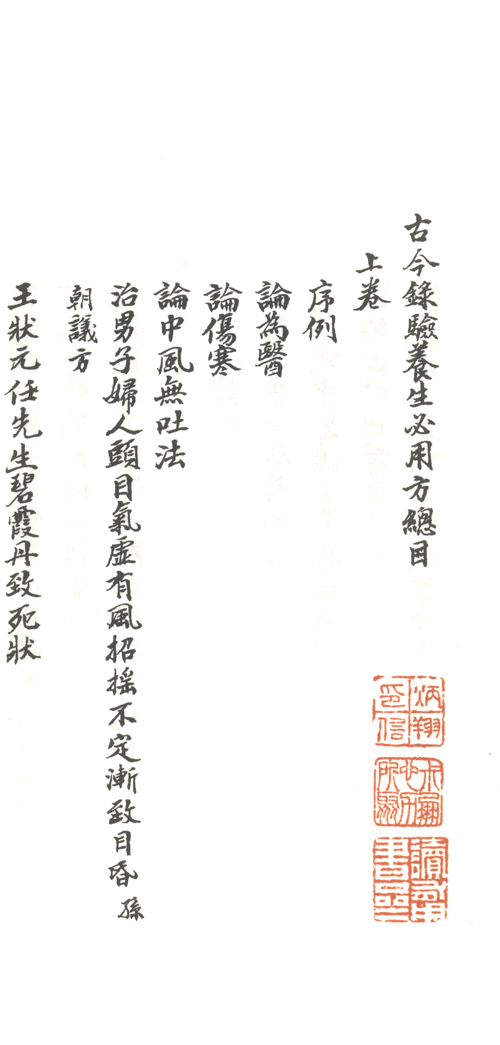 古今錄驗養生必用方總目
上卷
序例
論為醫
論傷寒
論中風無吐法
治男子婦人頭目氣虛有風招搖不定漸致目昏 孫
朝議方
王狀元任先生碧霞丹致死狀
炳翔
印信
讀
書